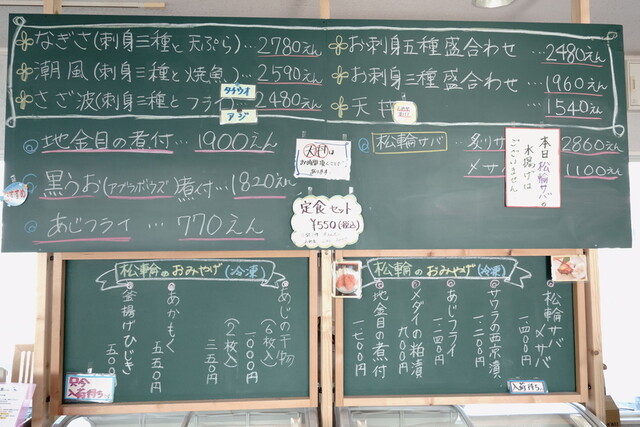 なぎさ(刺身三種と天ぷら)…2780えん
潮風(刺身三種と焼魚)…2590えん
さざ波(刺身三種とフライ)…2480えん
タチウオ
アジ
お刺身五種盛合わせ…2480えん
お刺身三種盛合わせ…1960えん
天丼…1540えん
地金目の煮付…1900えん
黒うお(アブラボウズ)煮付…1820えん
おすすめ
あじフライ…770えん
定食セット
¥550(税込)
松輪サバ
炙り
2860えん
メサ
1100えん
本日松輪サバの
水揚げは
ございません
松輪のおみやげ(冷凍)
あじの干物
(6枚)
一〇〇〇円
(2枚)
三五〇円
あかもく
五五〇円
釜揚げひじき
五五〇円
入荷待ち
松輪のおみやげ(冷凍)
松輪サバ
メサバ
一、四〇〇円
サワラの西京漬
一、二〇〇円
あじフライ
一、二四〇円
メダイの粕漬
九〇〇円
地金目の煮付
一、七〇〇円
入荷待ち